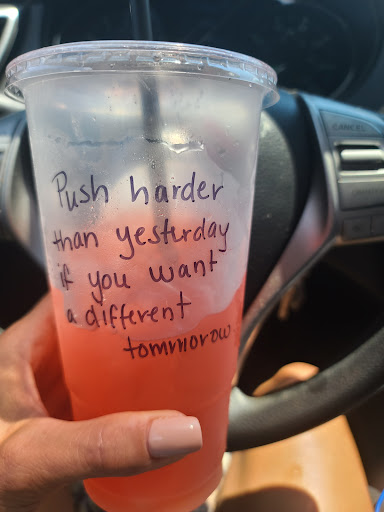 Push harder
than yesterday
if you want
a different
tommorow.
CANCEL